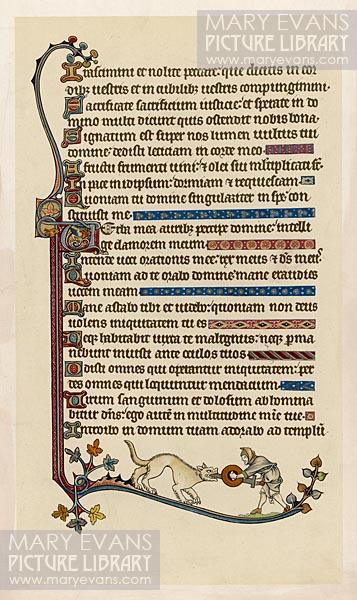 MARY EVANS
PICTURE LIBRARY
www.maryevans.com
Irascimini et nolite peccare: que dicitis in cor
dib; vestris et in cubilib; vestris compungimini
Sacrificate sacrificium iusticie: et sperate in do
mino multi dicunt quis ostendit nobis bona
Signatum est super nos lumen vultus tui
domine: dedisti leticiam in corde meo
frumenti vini: & olei sui multiplicati st
In pace in idipsum: dormiam & requiescam
Quoniam tu domine singulariter in spe: con
stituisti me
Verba mea auribus percipe domine: intellige
clamorem meum
Intende voci orationis mee: rex meus & ds meus
Quoniam ad te orabo domine: mane exaudies
vocem meam
Mane astabo tibi et videbo: quoniam non deus
volens iniquitatem tu es
Neq; habitabit iuxta te malignus: neq; perma
nebunt iniusti ante oculos tuos
Odisti omnes qui operantur iniquitatem: per
des omnes qui loquuntur mendacium
Virum sanguinum et dolosum abhomina
bitur dns: ego aute in multitudine mie tue
Introibo in domum tuam adorabo ad templu
MARY EVANS
PICTURE LIBRARY
www.maryevans.com